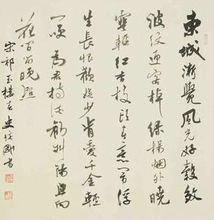 東城漸覺風光好縠皺
波紋迎客棹綠楊煙外曉
寒輕紅杏枝頭春意鬧浮
生長恨歡娛少肯愛千金輕
一笑為君持酒勸斜陽且向
花間留晚照
宋祁玉樓春